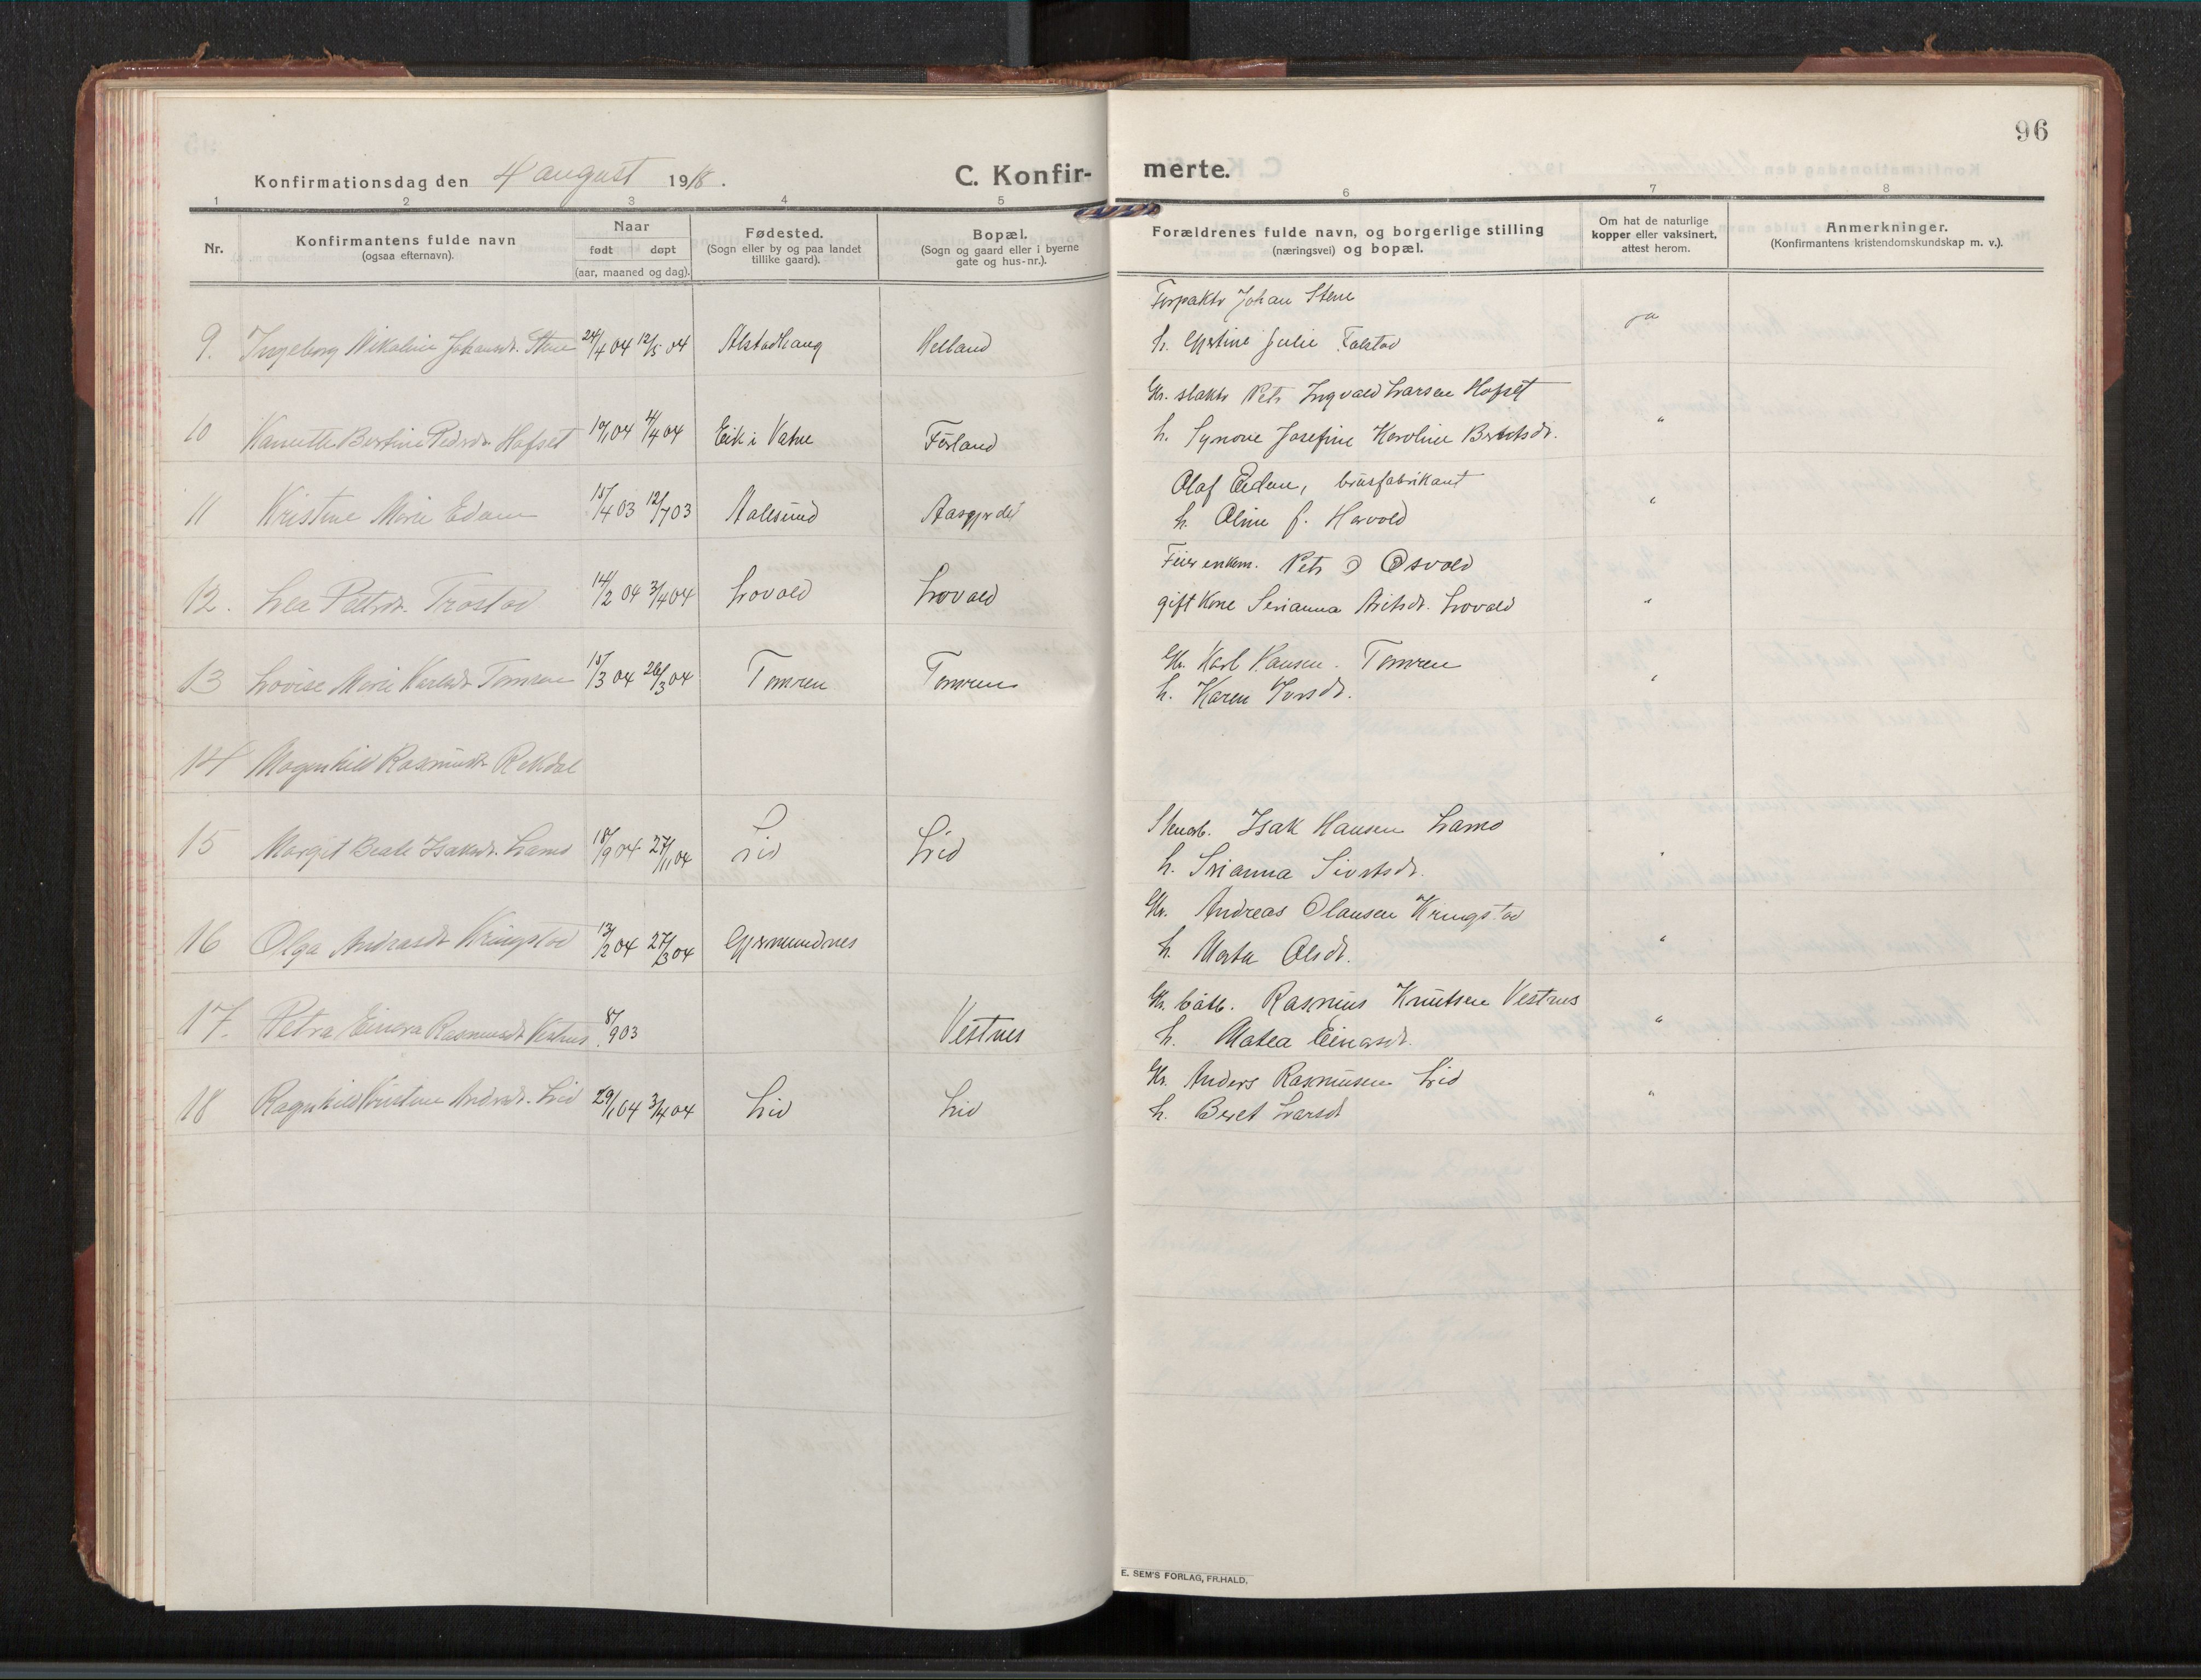 96
Konfirmationsdag den 4 august 1918.
C. Konfir-
merte.
1 2 3 4 5 6 7 8
Nr.
Konfirmantens fulde navn
(ogsaa efternavn).
Naar
født døpt
(aar, maaned og dag).
Fødested.
(Sogn eller by og paa landet
tillike gaard).
Bopæl.
(Sogn og gaard eller i byerne
gate og hus-nr.).
Forældrenes fulde navn, og borgerlige stilling
(næringsvei) og bopæl.
Om hat de naturlige
kopper eller vaksinert,
attest herom.
Anmerkninger.
(Konfirmantens kristendomskundskap m. v.).
Forpaktr Johan Stene
9. Ingeborg Nikoline Johansdr. Stene 24/4 04 12/5 04 Alstadhaug Helland h. Gjertine Julie Falstad ja
Gr. slaktr Petr Ingvald Larsen Hofset
10 Hofset 19/1 04 4/4 04 Eik i Vatne Förland h. Synove Josefine Karoline "
Olaf Eidem, brusfabrikant
11 Kristine Marie Edem 15/4 03 12/7 03 Aalesund h. Oline f. "
Petr Osvold
12. Lea Petrsdr. Trostad 14/2 04 3/4 04 Lovold Lovold gift Kone Serianna Lovold "
Gr. Karl Hansen Tomren
13 Lovise Marie Karlsdr Tomren 15/3 04 26/3 04 Tomren Tomren h. Karen "
14 Magnhild Rasmusdr Rekdal
Isak Hansen Lamo
15 Margit Beate Isaksdr. Lamo 18/9 04 27/11 04 Lid Lid h. Serianna Sivertsdr. "
Gr. Andreas Olausen Kringstad
16 Olga Andreasdr Kringstad 13/2 04 27/3 04 Gjermundnes h. Marta Olsdr. "
Gr. båtb. Rasmus Knutsen Vestnes
17. Petra Einara Rasmusdr Vestnes 8/9 03 Vestnes h. Matea Einarsdr. "
Gr. Anders Rasmusen Lid
18 Ragnhild Kristine Andrsdr. Lid 29/1 04 3/4 04 Lid Lid h. Beret Larsdr "
E. SEM'S FORLAG, FR.HALD.